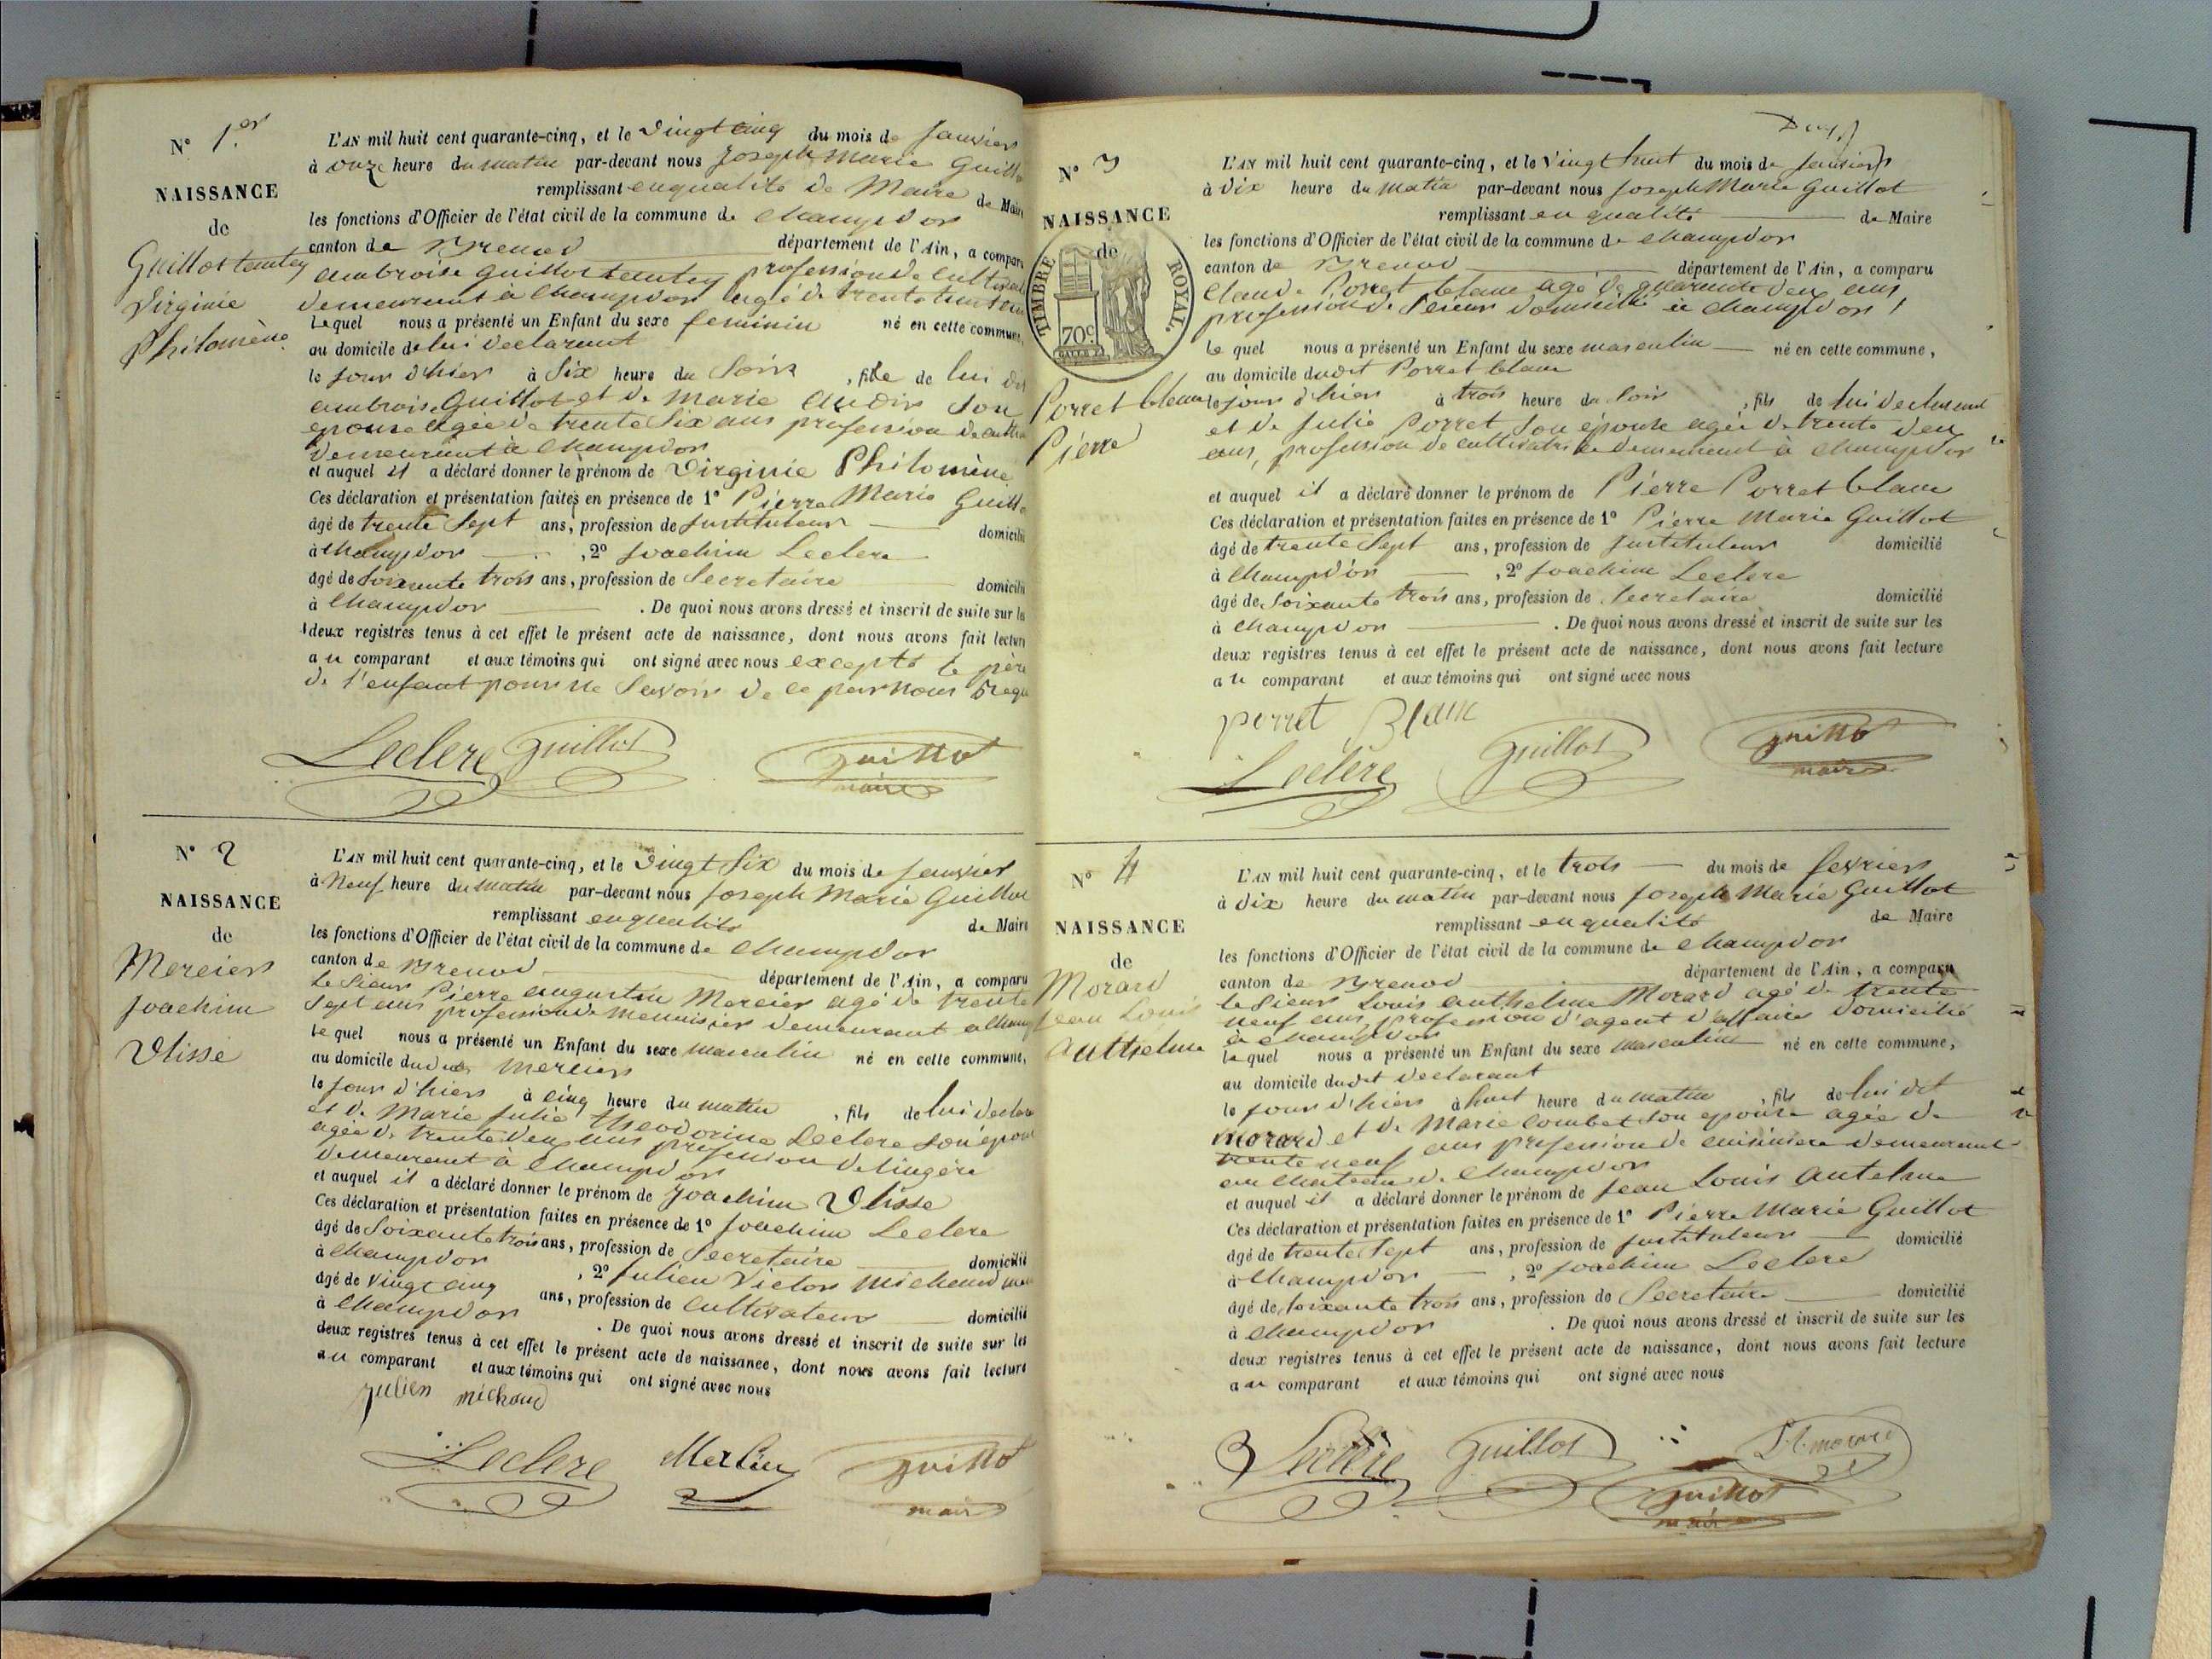 N° 1.er
NAISSANCE
de
Guillot tantey
Virginie
Philomène
L'AN mil huit cent quarante-cinq, et le Vingt cinq du mois de Janvier
à onze heure du matin par-devant nous Joseph Marie Guillot
remplissant en qualité de Maire de Maire
les fonctions d'Officier de l'état civil de la commune de Champdor
canton de Brenod département de l'Ain, a comparu
ambroise Guillot tantey profession de cultivat
demeurant à Champdor agé de trente
Lequel nous a présenté un Enfant du sexe feminin né en cette commune,
au domicile de lui declarant
le jour d'hier à Six heure du Soir, fille de lui dit
ambroise Guillot et de Marie Son
epouse agée de trente Six ans profession de
demeurant à Champdor
et auquel il a déclaré donner le prénom de Virginie Philomène
Ces déclaration et présentation faites en présence de 1° Pierre Marie Guillot
âgé de trente Sept ans, profession de Instituteur domicilié
à Champdor, 2° Joachim Leclere
âgé de Soixante trois ans, profession de Secretaire domicilié
à Champdor. De quoi nous avons dressé et inscrit de suite sur les
deux registres tenus à cet effet le présent acte de naissance, dont nous avons fait lecture
au comparant et aux témoins qui ont signé avec nous excepté le père
de l'enfant pour ne Savoir de ce par nous Requ
Leclere Guillot Guillot
maire
N° 2
NAISSANCE
de
Mercier
Joachim
Ulisse
L'AN mil huit cent quarante-cinq, et le Vingt Six du mois de Janvier
à Neuf heure du matin par-devant nous Joseph Marie Guillot
remplissant en qualité de Maire
les fonctions d'Officier de l'état civil de la commune de Champdor
canton de Brenod département de l'Ain, a comparu
le Sieur Pierre augustin Mercier agé de trente
Sept ans profession de Menuisier demeurant a Champ
Le quel nous a présenté un Enfant du sexe masculin né en cette commune,
au domicile dudit Mercier
le jour d'hier à cinq heure du matin, fils de lui declara
et de Marie Julie theodorine Leclere son épou
agée de trente deux ans profession de lingère
demeurant à Champdor
et auquel il a déclaré donner le prénom de Joachim Ulisse
Ces déclaration et présentation faites en présence de 1° Joachim Leclere
âgé de Soixante trois ans, profession de Secretaire domicilié
à Champdor, 2° Julien Victor Michaud
âgé de Vingt cinq ans, profession de Cultivateur domicilié
à Champdor. De quoi nous avons dressé et inscrit de suite sur les
deux registres tenus à cet effet le présent acte de naissance, dont nous avons fait lecture
au comparant et aux témoins qui ont signé avec nous
julien michaud
Leclere Guillot
maire
N° 3
NAISSANCE
de
TIMBRE ROYAL.
70c
Porret blanc
Pierre
L'AN mil huit cent quarante-cinq, et le Vingt huit du mois de Janvier
à dix heure du matin par-devant nous Joseph Marie Guillot
remplissant en qualité de Maire
les fonctions d'Officier de l'état civil de la commune de Champdor
canton de Brenod département de l'Ain, a comparu
Claude Porret blanc agé de quarante deux ans
profession de Scieur domicilié à Champdor,
Le quel nous a présenté un Enfant du sexe masculin né en cette commune,
au domicile dudit Porret blanc
le jour d'hier à trois heure du Soir, fils de lui declarant
et de Julie Porret Son épouse agée de trente deux
ans, profession de cultivatrice demeurant à Champdor
et auquel il a déclaré donner le prénom de Pierre Porret blanc
Ces déclaration et présentation faites en présence de 1° Pierre Marie Guillot
âgé de trente Sept ans, profession de Instituteur domicilié
à Champdor, 2° Joachim Leclere
âgé de Soixante trois ans, profession de Secretaire domicilié
à Champdor. De quoi nous avons dressé et inscrit de suite sur les
deux registres tenus à cet effet le présent acte de naissance, dont nous avons fait lecture
au comparant et aux témoins qui ont signé avec nous
porret Blanc
Leclere Guillot Guillot
maire
N° 4
NAISSANCE
de
Morard
Jean Louis
Anthelme
L'AN mil huit cent quarante-cinq, et le trois du mois de fevrier
à dix heure du matin par-devant nous Joseph Marie Guillot
remplissant en qualité de Maire
les fonctions d'Officier de l'état civil de la commune de Champdor
canton de Brenod département de l'Ain, a comparu
le Sieur Louis anthelme Morard agé de trente
neuf ans, profession d'agent d'affaires domicilié
à Champdor
Le quel nous a présenté un Enfant du sexe masculin né en cette commune,
au domicile dudit declarant
le jour d'hier à huit heure du matin, fils de lui dit
Morard et de Marie Combet Son epouse agée de
trente neuf ans profession de cuisiniere demeurant
au Chateau de Champdor
et auquel il a déclaré donner le prénom de Jean Louis Antelme
Ces déclaration et présentation faites en présence de 1° Pierre Marie Guillot
âgé de trente Sept ans, profession de Instituteur domicilié
à Champdor, 2° Joachim Leclere
âgé de Soixante trois ans, profession de Secretaire domicilié
à Champdor. De quoi nous avons dressé et inscrit de suite sur les
deux registres tenus à cet effet le présent acte de naissance, dont nous avons fait lecture
au comparant et aux témoins qui ont signé avec nous
Leclere Guillot
Guillot
maire